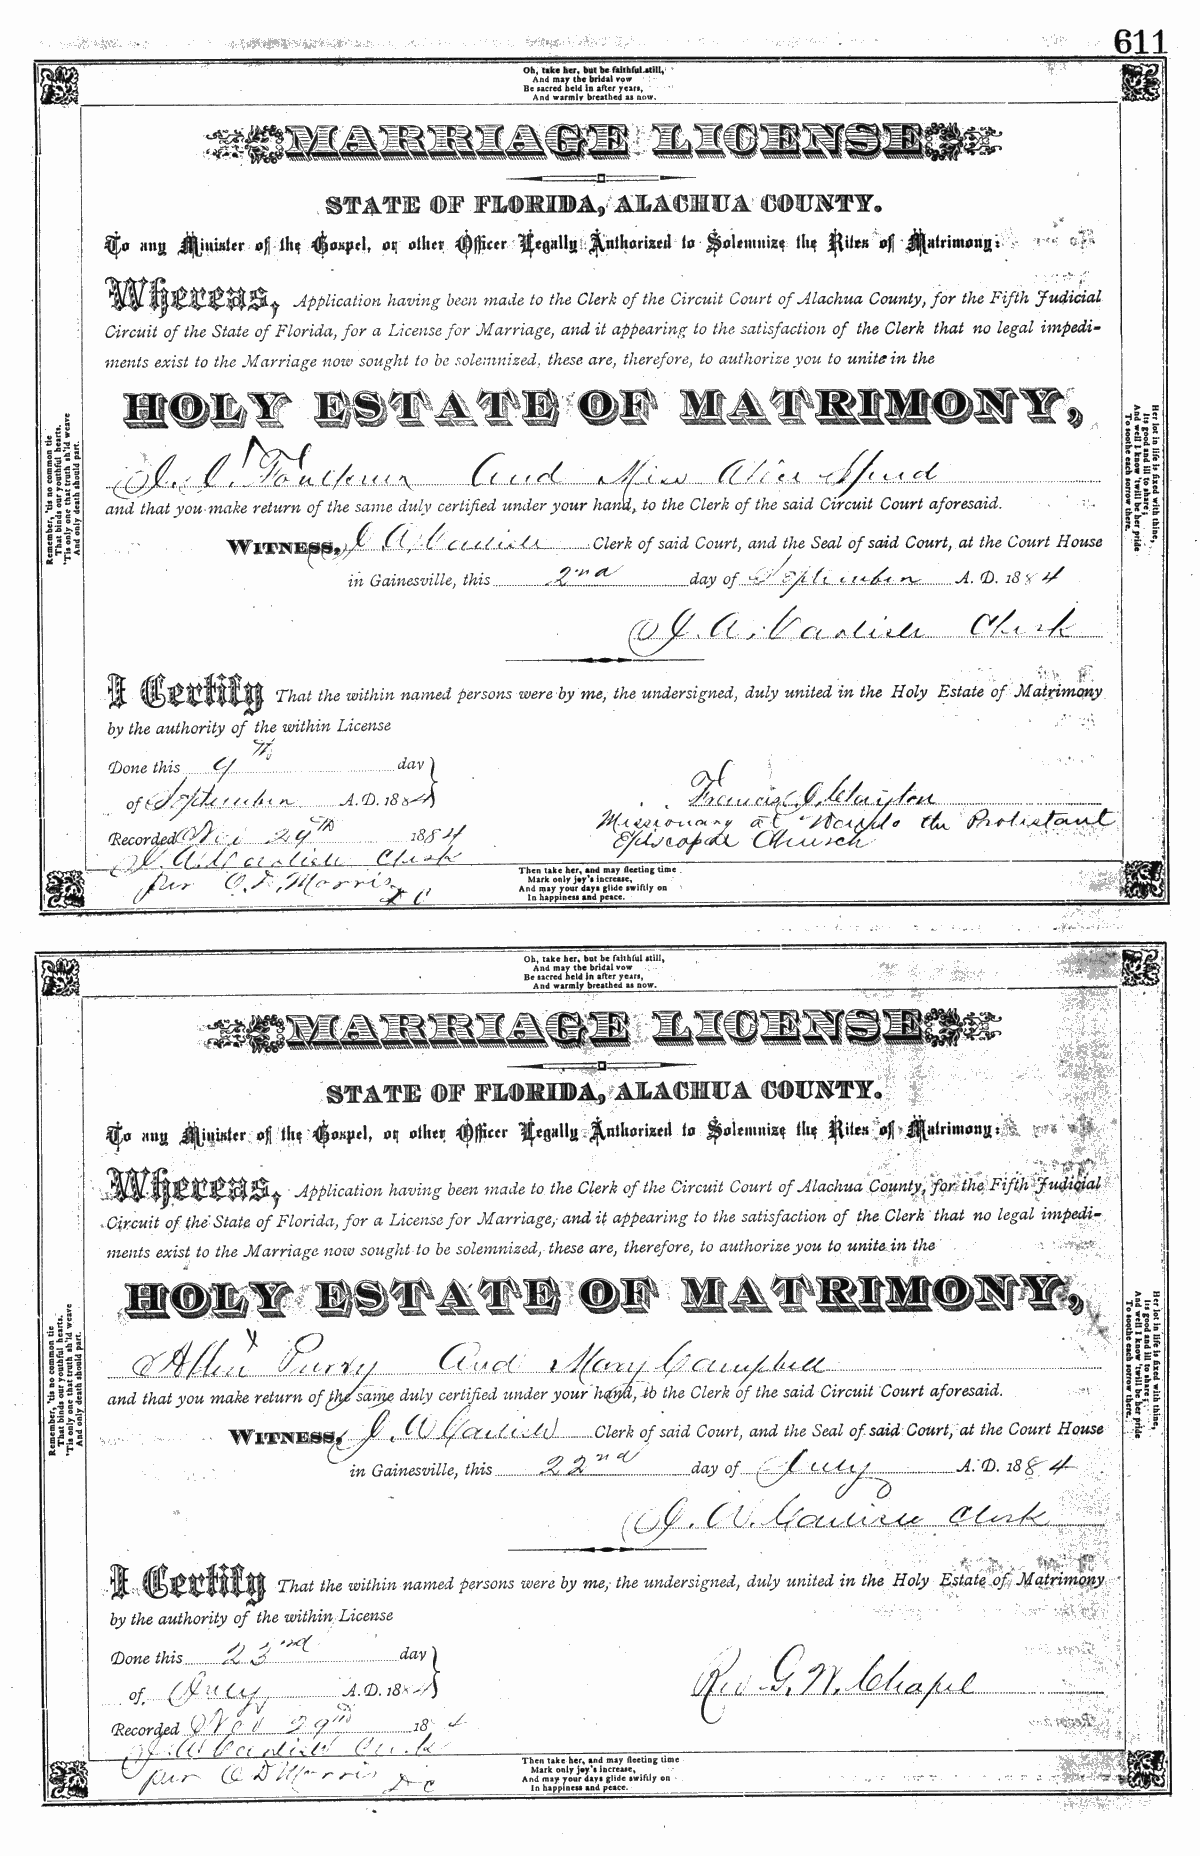 611
Oh, take her, but be faithful still,
And may the bridal vow
Be sacred held in after years,
And warmly breathed as now.
MARRIAGE LICENSE
STATE OF FLORIDA, ALACHUA COUNTY.
To any Minister of the Gospel, or other Officer Legally Authorized to Solemnize the Rites of Matrimony:
Whereas, Application having been made to the Clerk of the Circuit Court of Alachua County, for the Fifth Judicial
Circuit of the State of Florida, for a License for Marriage, and it appearing to the satisfaction of the Clerk that no legal impedi-
ments exist to the Marriage now sought to be solemnized, these are, therefore, to authorize you to unite in the
HOLY ESTATE OF MATRIMONY,
Faulkner And Miss Alice
and that you make return of the same duly certified under your hand, to the Clerk of the said Circuit Court aforesaid.
WITNESS, J A Carlisle Clerk of said Court, and the Seal of said Court, at the Court House
in Gainesville, this 2nd day of September A. D. 1884
J. A. Carlisle Clerk
I Certify That the within named persons were by me, the undersigned, duly united in the Holy Estate of Matrimony
by the authority of the within License
Done this day
of September A. D. 1884
Francis
Missionary at Waldo the Protistant
Episcopal Church
Recorded Nov 29th 1884
J. A. Carlisle Clerk
per C D. Morris
D C
Remember, 'tis no common tie
That binds our youthful hearts,
'Tis only one that truth sh'ld weave
And only death should part.
Her lot in life is fixed with thine,
Its good and ill to share;
And well I know 'twill be her pride
To soothe each sorrow there.
Then take her, and may fleeting time
Mark only joy's increase,
And may your days glide swiftly on
In happiness and peace.
Oh, take her, but be faithful still,
And may the bridal vow
Be sacred held in after years,
And warmly breathed as now.
MARRIAGE LICENSE
STATE OF FLORIDA, ALACHUA COUNTY.
To any Minister of the Gospel, or other Officer Legally Authorized to Solemnize the Rites of Matrimony:
Whereas, Application having been made to the Clerk of the Circuit Court of Alachua County, for the Fifth Judicial
Circuit of the State of Florida, for a License for Marriage, and it appearing to the satisfaction of the Clerk that no legal impedi-
ments exist to the Marriage now sought to be solemnized, these are, therefore, to authorize you to unite in the
HOLY ESTATE OF MATRIMONY,
Allen Purry And Mary Campbell
and that you make return of the same duly certified under your hand, to the Clerk of the said Circuit Court aforesaid.
WITNESS, J. A Carlisle Clerk of said Court, and the Seal of said Court, at the Court House
in Gainesville, this 22nd day of July A. D. 1884
J. A. Carlisle Clerk
I Certify That the within named persons were by me, the undersigned, duly united in the Holy Estate of Matrimony
by the authority of the within License
Done this 23nd day
of July A. D. 1884
Rev G. W. Chapel
Recorded Nov 29th 1884
J. A. Carlisle Clerk
per C D Morris D C
Remember, 'tis no common tie
That binds our youthful hearts,
'Tis only one that truth sh'ld weave
And only death should part.
Her lot in life is fixed with thine,
Its good and ill to share;
And well I know 'twill be her pride
To soothe each sorrow there.
Then take her, and may fleeting time
Mark only joy's increase,
And may your days glide swiftly on
In happiness and peace.